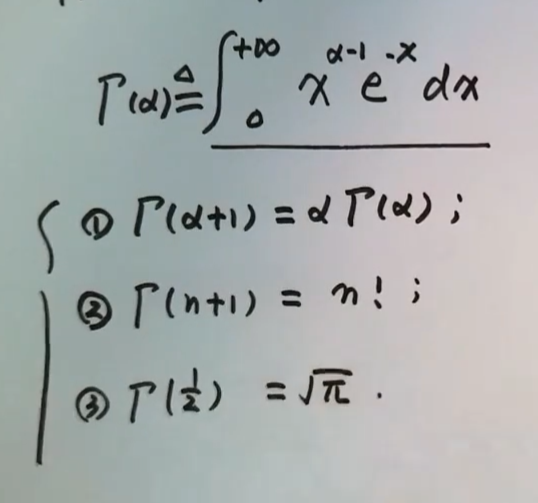 Γ(α)≜∫₀^{+∞} x^{α-1} e^{-x} dx
① Γ(α+1) = αΓ(α) ;
② Γ(n+1) = n! ;
③ Γ(1/2) = √π .